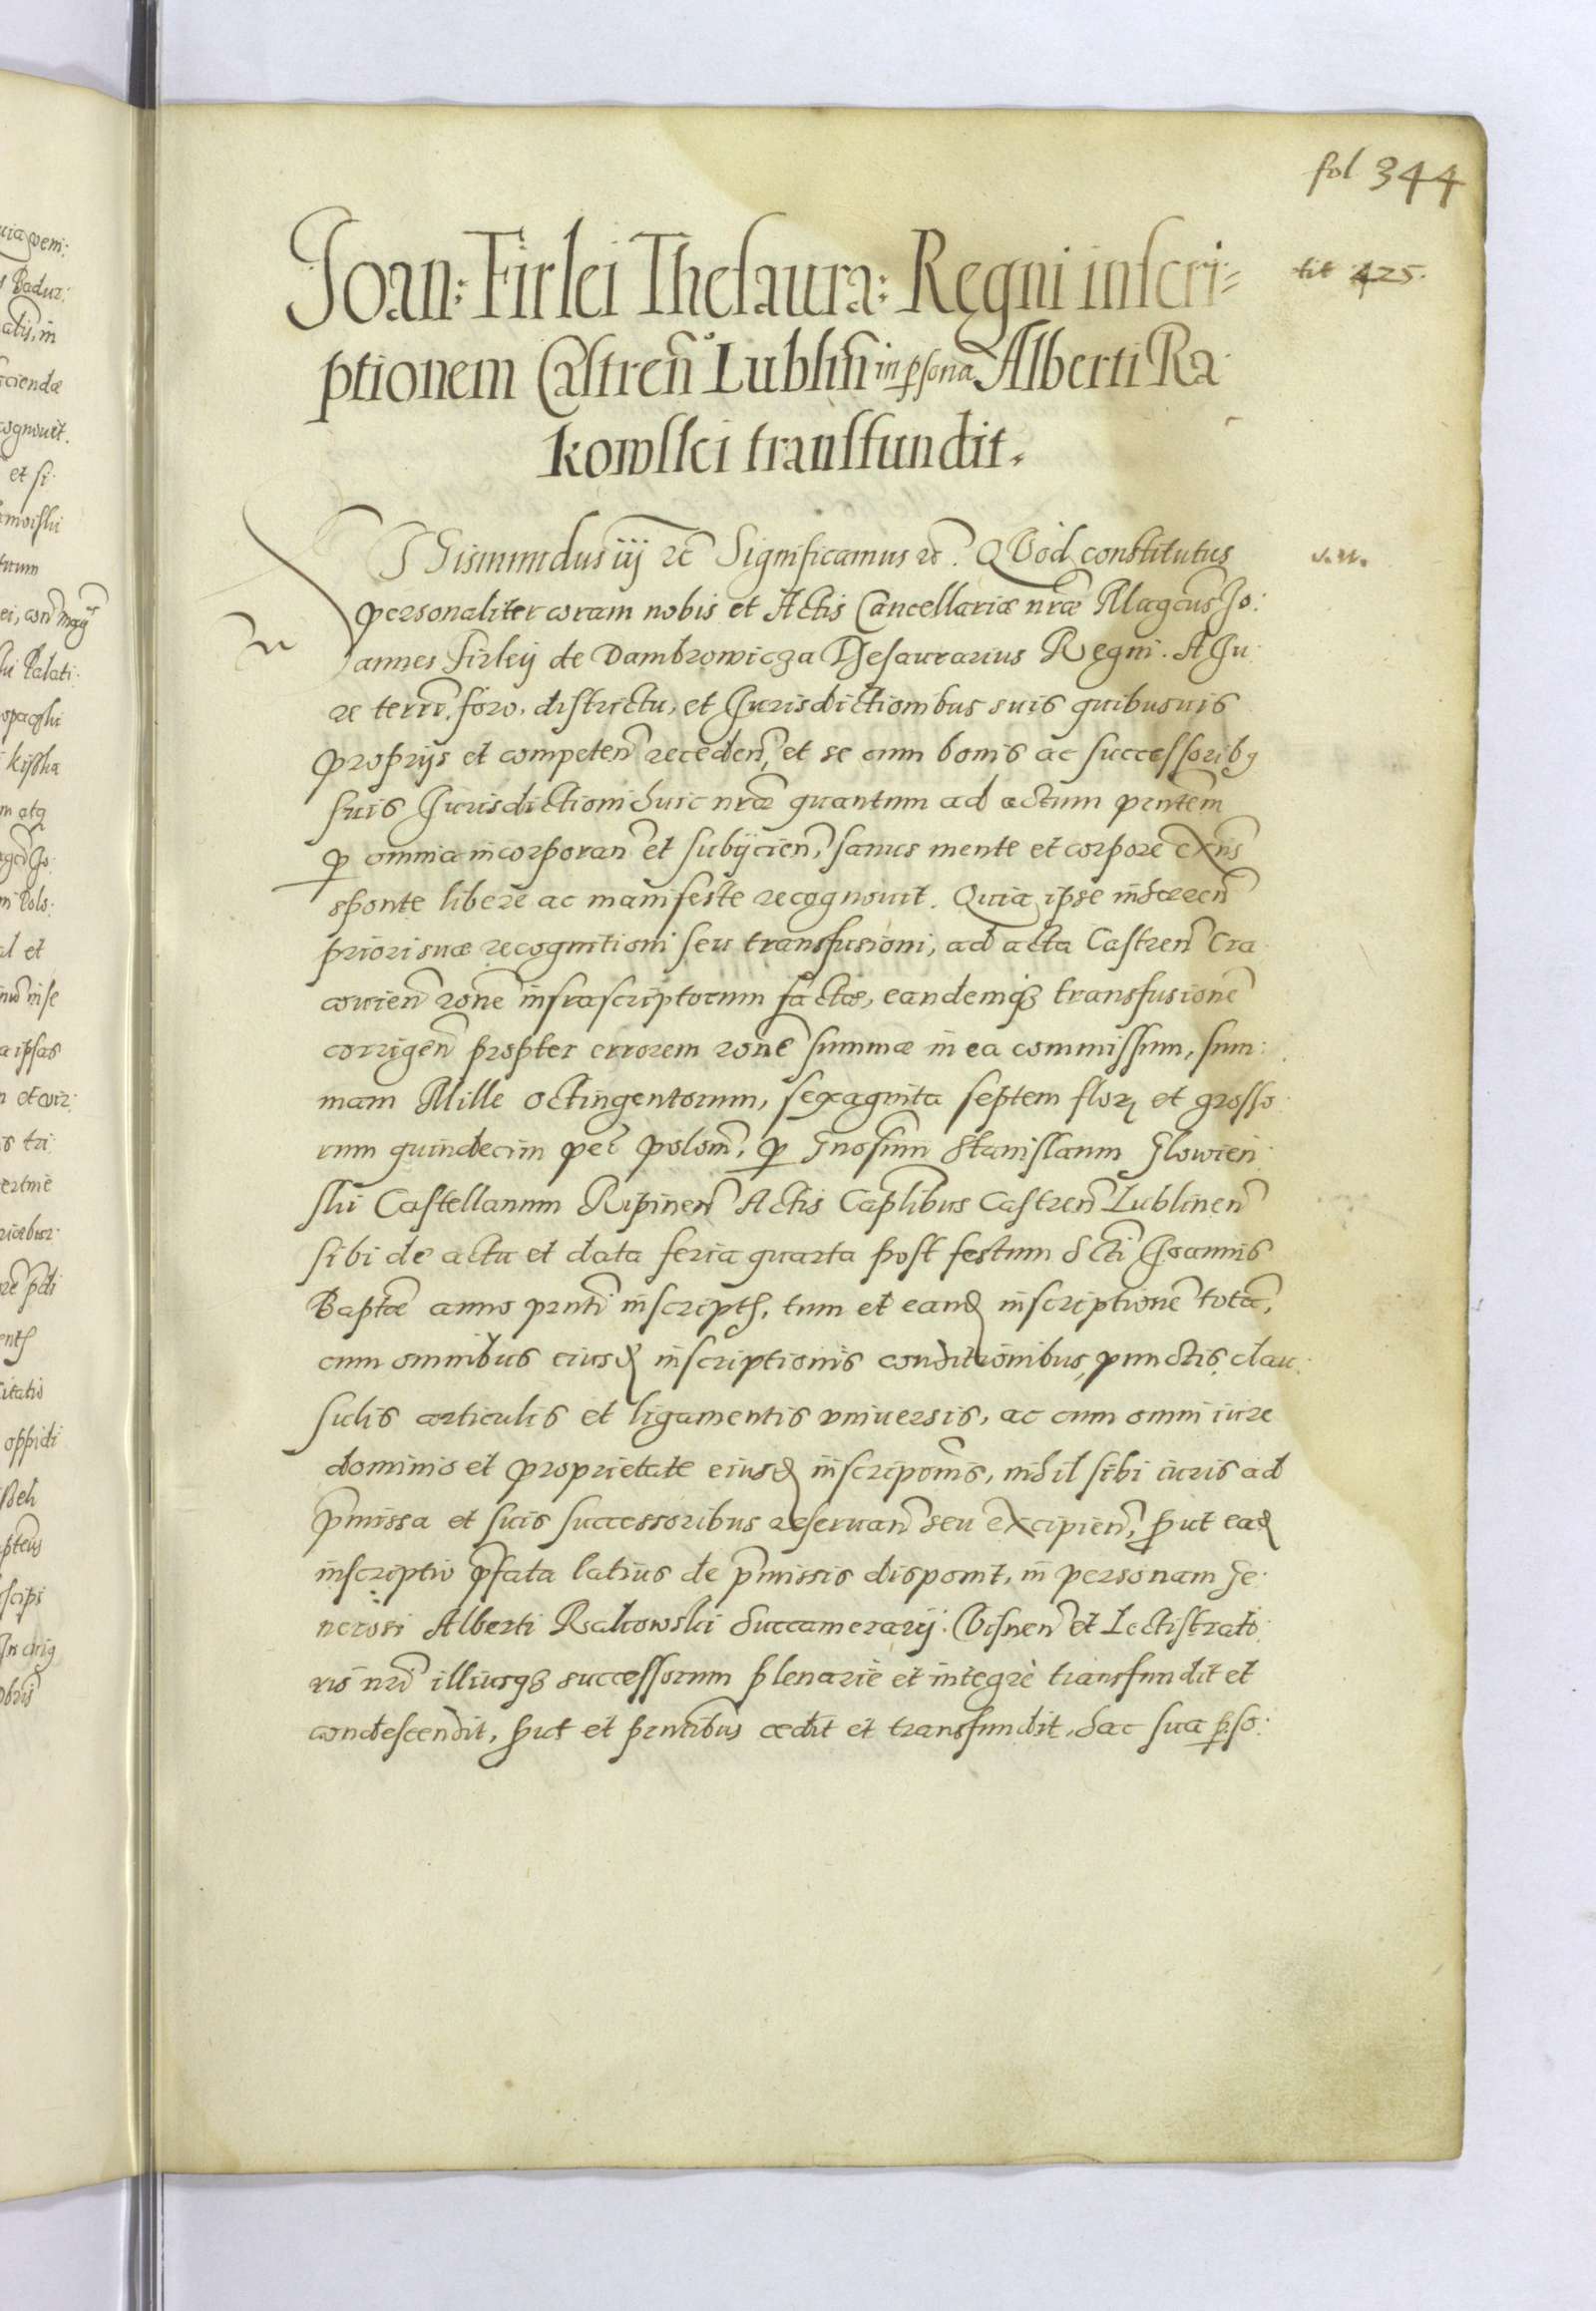 fol 344
Joan: Firlei Thesaura: Regni inscri=
tit 425.
ptionem Castreñ Lubliñ in psona Alberti Ra
kowskei transfundit.
SGismundus iij etc Significamus etc. QVod constitutus
personaliter coram nobis et Actis Cancellariæ nræ Magcus Jo:
annes Firleij de Dambrowicza Thesaurarius Regni. A Ju
re terrī, foro, districtu, et Jurisdictionibus suis quibusuis
proprijs et competeñ recedeñ, et se cum bonis ac successoribq
suis Jurisdictioni huic nræ quantum ad actum prntem
p omnia incorporañ et subijcieñ, sanus mente et corpore exñs
sponte libere ac manifeste recognouit. Quia ipse inhæreñ
priori suæ recognitioni seu transfusioni, ad acta Castreñ Cra
couieñ rone infrascriptorum factæ, eandemqз transfusionē
corrigeñ propter errorem ronē summæ in ea commissum, sum:
mam Mille octingentorum, sexaginta septem flor et grosso
rum quindecim pec polom, p Gnosum Stanislaum Glowien
ski Castellanum Ripineñ Actis Caplibus Castreñ Lublineñ
sibi de actu et data feria quarta post festum Scti Joannis
Baptæ anno prnti inscriptħ, tum et eand inscriptionē totā,
cum omnibus eiusd inscriptionis conditionibus, punctis, clau:
sulis articulis et ligamentis vniuersis, ac cum omni iure
dominio et proprietate eiusd inscripōnis, nihil sibi iuris ad
pmissa et suis successoribus reseruañ seu excipieñ, put ead
inscriptio pfata latius de pmissis disponit, in personam Ge:
nerosi Alberti Rakowski Succamerarij Visneñ et Lectistrato
ris nri illiusqз successorum plenarie et integrè transfundit et
condescendit, put et prntibus cedit et transfundit, hac sua pso: